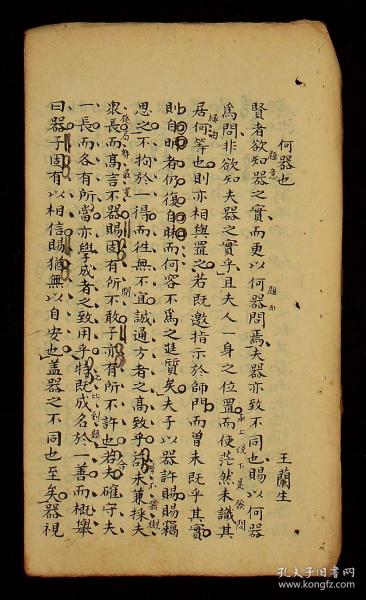 何器也
王蘭生
賢者欲知器之實而更以何器問焉夫器亦致不同也賜以何器
為問非欲知夫器之實乎且夫人一身之位置而使茫然未識其
居何等也則亦相與置之若既邀指示於師門而曾未既乎其實
則自明者仍復自昧而何容不為之進質矣夫子以器許賜賜竊
思之不拘於一得而往無不宜誠通方者之高致乎苟未兼採夫
衆長而高言不器賜固有所不敢子亦有所不許也若夫確守夫
一長而各有所當亦學成者之致用乎特既成名於一善而概舉
曰器子固有以相信賜猶無以自安也蓋器之不同也至矣器視
題意
題面
承上說下是徐問
孔夫子旧书网
www.kongfz.com